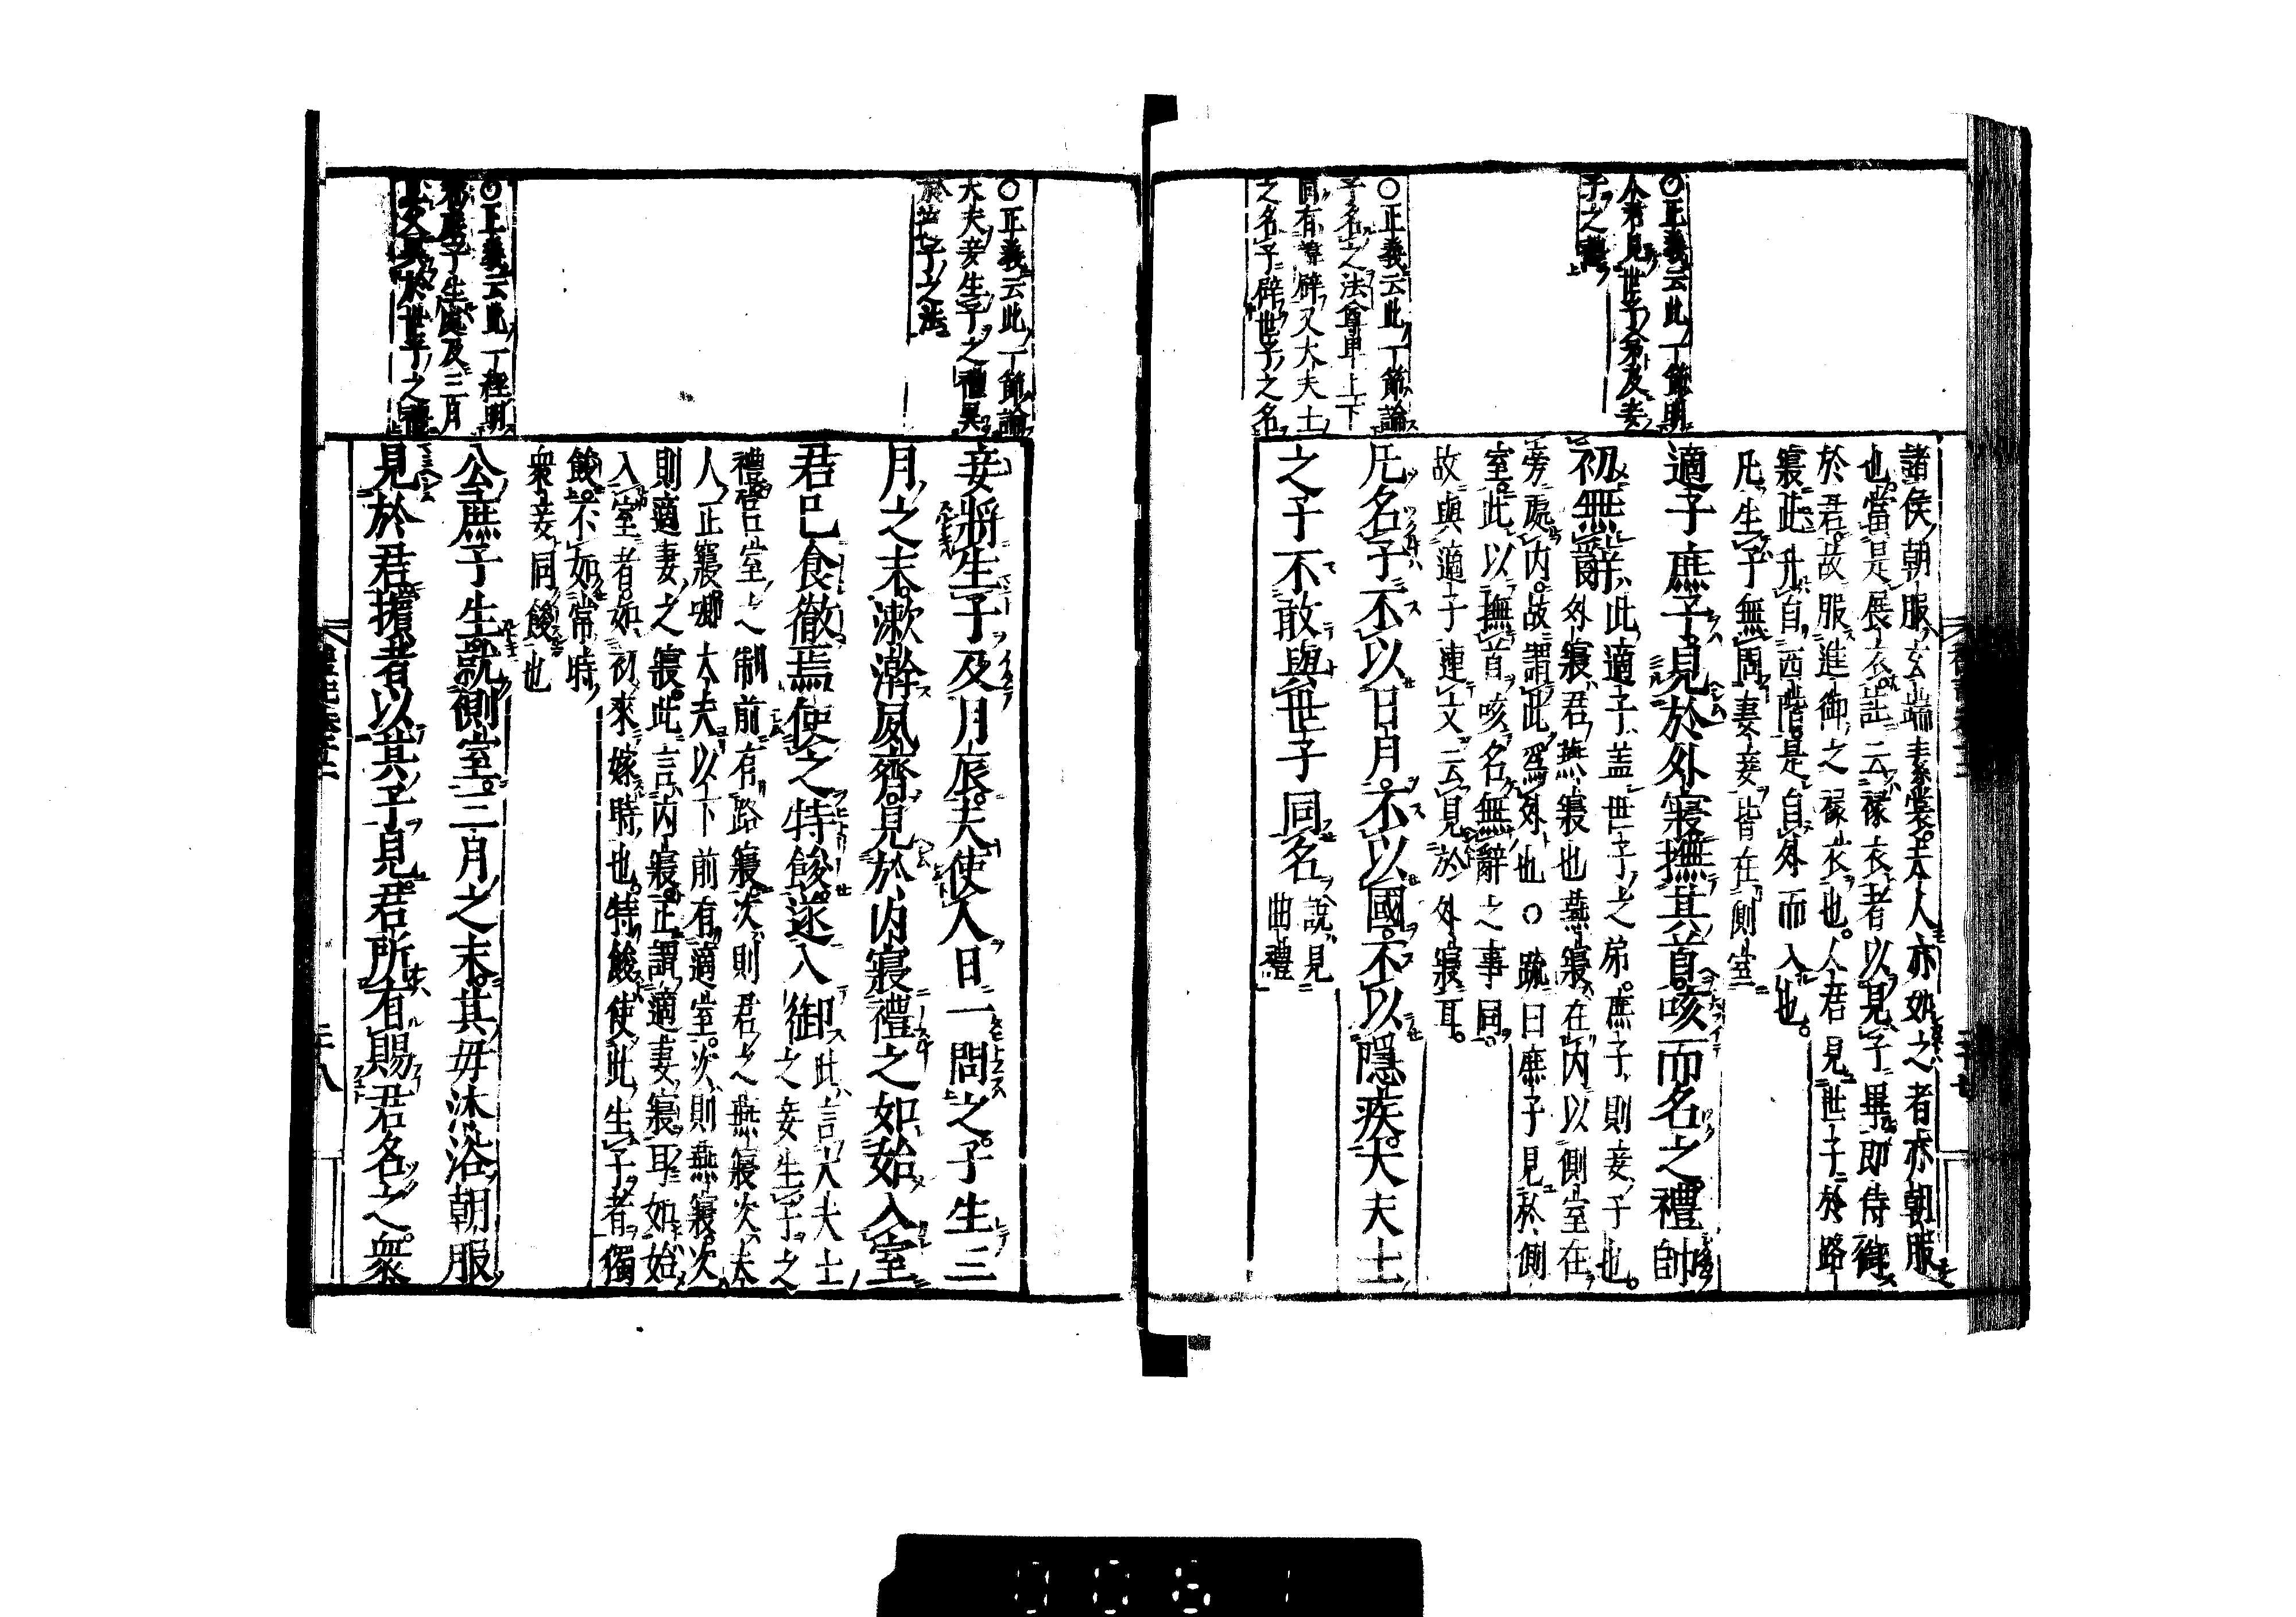 ○正義云此一節明
人君見世子次弟及妻
子之禮
○正義云此一節論
子名之法尊卑上下
同有諱辟又大夫士
之名子辟世子之名
諸侯朝服玄端素裳夫人亦如之者亦朝服
也當是展衣註云褖衣者以見子畢即侍御
於君故服進御之褖衣也人君見世子於路
寢此升自西階是自外而入也
凡生子無問妻妾皆在側室
適子庶子見於外寢撫其首咳而名之禮帥
初無辭此適子蓋世子之弟庶子則妾子也
外寢君燕寢也燕寢在內以側室在
旁處內故謂此為外也○疏曰庶子見於側
室此以撫首咳名無辭之事同
故與適子連文云見於外寢耳
凡名子不以日月不以國不以隱疾大夫士
之子不敢與世子同名說見
曲禮
○正義云此一節論
大夫妾生子之禮異
於世子之法
○正義云此一經明
君庶子生處及三月
妾將生子及月辰夫使人日一問之子生三
月之末漱澣夙齊見於內寢禮之如始入室
君已食徹焉使之特餕遂入御此言大夫士
之妾生子之
禮宮室之制前有路寢次則君之燕寢次夫
人正寢卿大夫以下前有適室次則燕寢次
則適妻之寢此言內寢正謂適妻寢耳如始
入室者如初來嫁時也特餕使此生子者獨
餕不如常時
衆妾同餕也
公庶子生就側室三月之末其母沐浴朝服
見於君擯者以其子見君所有賜君名之衆
二十八